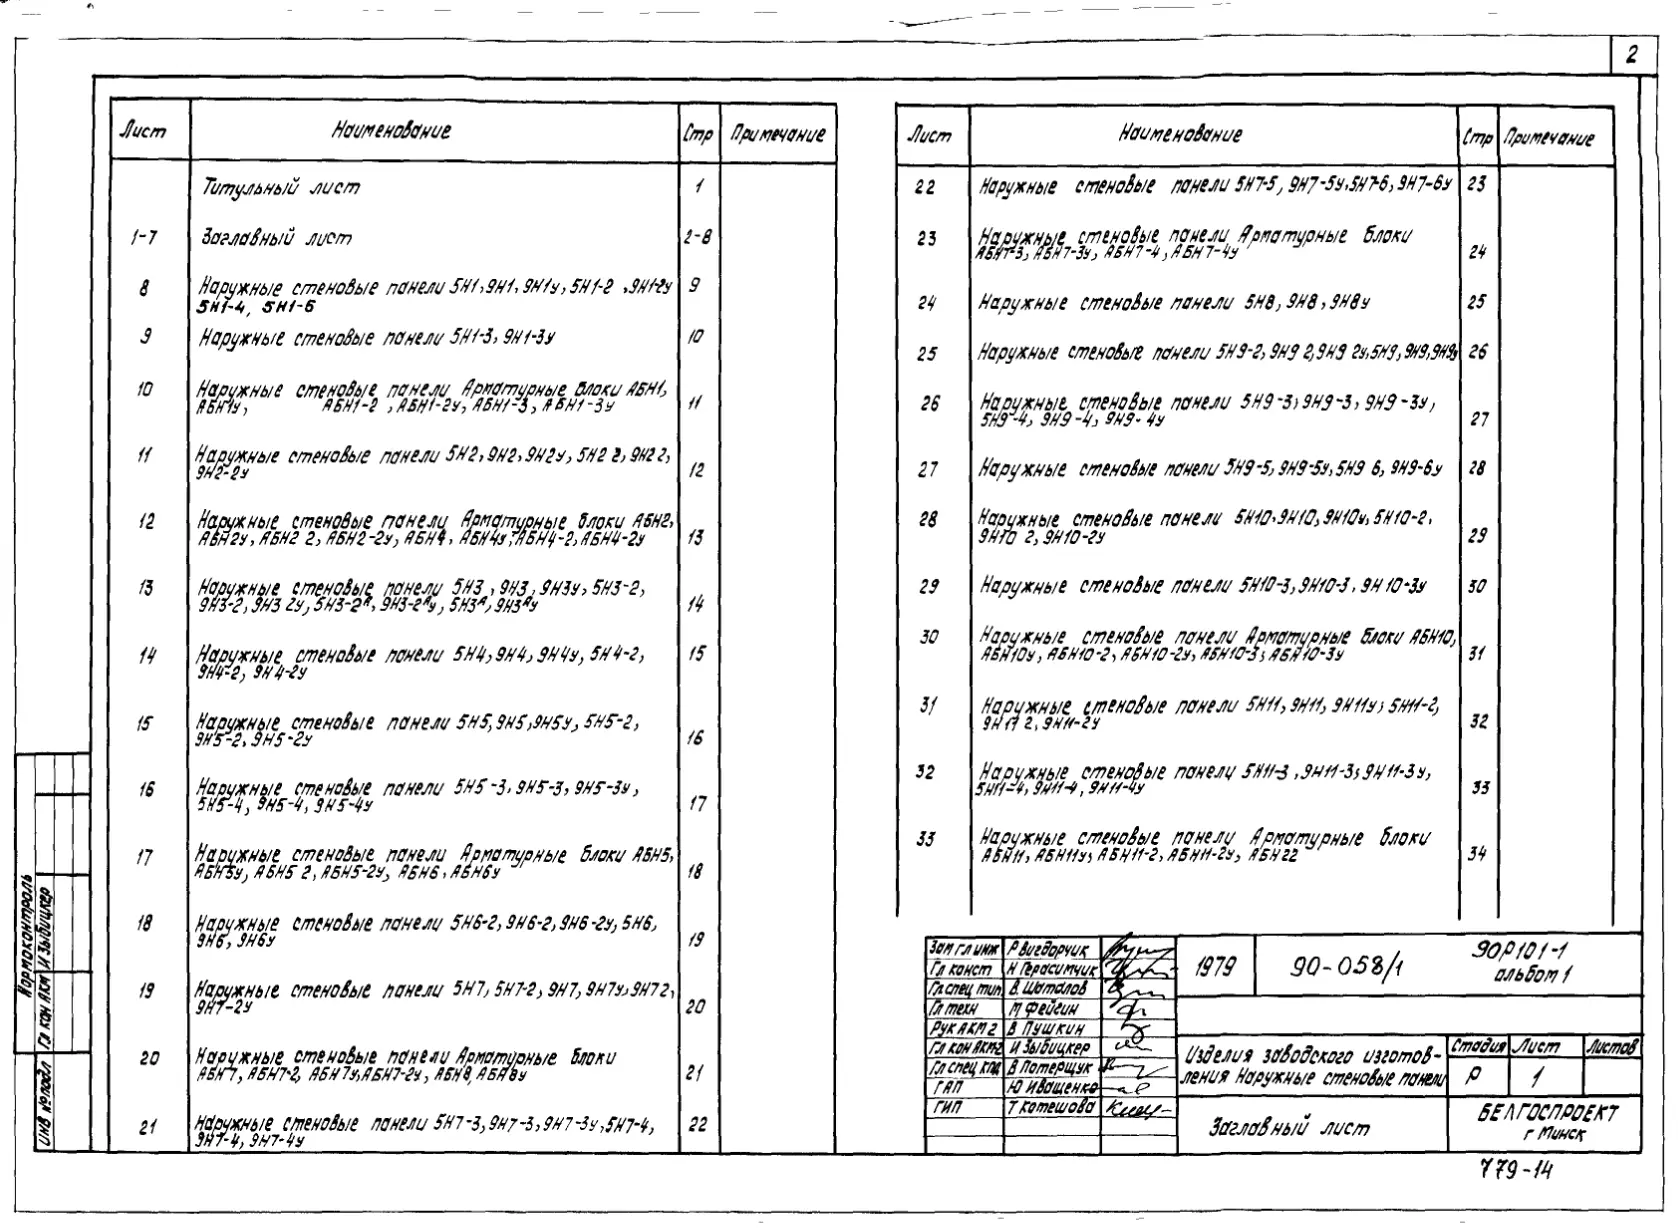 2
Лист Наименование Стр Примечание
Титульный лист 1
1-7 Заглавный лист 2-8
8 Наружные стеновые панели 5Н1, 9Н1, 9Н1у, 5Н1-2, 9Н1-2у 9
5Н1-4, 5Н1-6
9 Наружные стеновые панели 5Н1-3, 9Н1-3у 10
10 Наружные стеновые панели Арматурные блоки АБН1,
АБН1у, АБН1-2, АБН1-2у, АБН1-3, АБН1-3у 11
11 Наружные стеновые панели 5Н2, 9Н2, 9Н2у, 5Н2 2, 9Н2 2,
9Н2-2у 12
12 Наружные стеновые панели Арматурные блоки АБН2,
АБН2у, АБН2 2, АБН2-2у, АБН4, АБН4у, АБН4-2, АБН4-2у 13
13 Наружные стеновые панели 5Н3, 9Н3, 9Н3у, 5Н3-2,
9Н3-2, 9Н3 2у, 5Н3-2А, 9Н3-2Ау, 5Н3А, 9Н3Ау 14
14 Наружные стеновые панели 5Н4, 9Н4, 9Н4у, 5Н4-2, 15
9Н4-2, 9Н4-2у
15 Наружные стеновые панели 5Н5, 9Н5, 9Н5у, 5Н5-2,
9Н5-2, 9Н5-2у 16
16 Наружные стеновые панели 5Н5-3, 9Н5-3, 9Н5-3у,
5Н5-4, 9Н5-4, 9Н5-4у 17
17 Наружные стеновые панели Арматурные блоки АБН5,
АБН5у, АБН5 2, АБН5-2у, АБН6, АБН6у 18
18 Наружные стеновые панели 5Н6-2, 9Н6-2, 9Н6-2у, 5Н6,
9Н6, 9Н6у 19
19 Наружные стеновые панели 5Н7, 5Н7-2, 9Н7, 9Н7у, 9Н7 2,
9Н7-2у 20
20 Наружные стеновые панели Арматурные блоки
АБН7, АБН7-2, АБН7у, АБН7-2у, АБН8, АБН8у 21
21 Наружные стеновые панели 5Н7-3, 9Н7-3, 9Н7-3у, 5Н7-4, 22
9Н7-4, 9Н7-4у
Лист Наименование Стр Примечание
22 Наружные стеновые панели 5Н7-5, 9Н7-5у, 5Н7-6, 9Н7-6у 23
23 Наружные стеновые панели Арматурные блоки
АБН7-3, АБН7-3у, АБН7-4, АБН7-4у 24
24 Наружные стеновые панели 5Н8, 9Н8, 9Н8у 25
25 Наружные стеновые панели 5Н9-2, 9Н9 2, 9Н9 2у, 5Н9, 9Н9, 9Н9у 26
26 Наружные стеновые панели 5Н9-3, 9Н9-3, 9Н9-3у,
5Н9-4, 9Н9-4, 9Н9-4у 27
27 Наружные стеновые панели 5Н9-5, 9Н9-5у, 5Н9 6, 9Н9-6у 28
28 Наружные стеновые панели 5Н10, 9Н10, 9Н10у, 5Н10-2,
9Н10 2, 9Н10-2у 29
29 Наружные стеновые панели 5Н10-3, 9Н10-3, 9Н10-3у 30
30 Наружные стеновые панели Арматурные блоки АБН10,
АБН10у, АБН10-2, АБН10-2у, АБН10-3, АБН10-3у 31
31 Наружные стеновые панели 5Н11, 9Н11, 9Н11у, 5Н11-2,
9Н11 2, 9Н11-2у 32
32 Наружные стеновые панели 5Н11-3, 9Н11-3, 9Н11-3у,
5Н11-4, 9Н11-4, 9Н11-4у 33
33 Наружные стеновые панели Арматурные блоки
АБН11, АБН11у, АБН11-2, АБН11-2у, АБН22 34
Зам гл инж Р Вигдорчик
Гл конст Н Герасимчик
Гл спец тип В. Шаталов
Гл техн М Фейгин
Рук АКМ 2 В Пушкин
Гл кон АКМ2 И Зыбицкер
Гл спец В Потерщук
ГАП Ю Иващенко
ГИП Т Катешова
1979 90-058/1 90Р101-1
альбом 1
Изделия заводского изготов-
ления Наружные стеновые панели
Стадия Лист Листов
Р 1
Заглавный лист
БЕЛГОСПРОЕКТ
г Минск
779-14
Нормоконтроль
Гл кон АКМ И Зыбицкер
Инв № подл